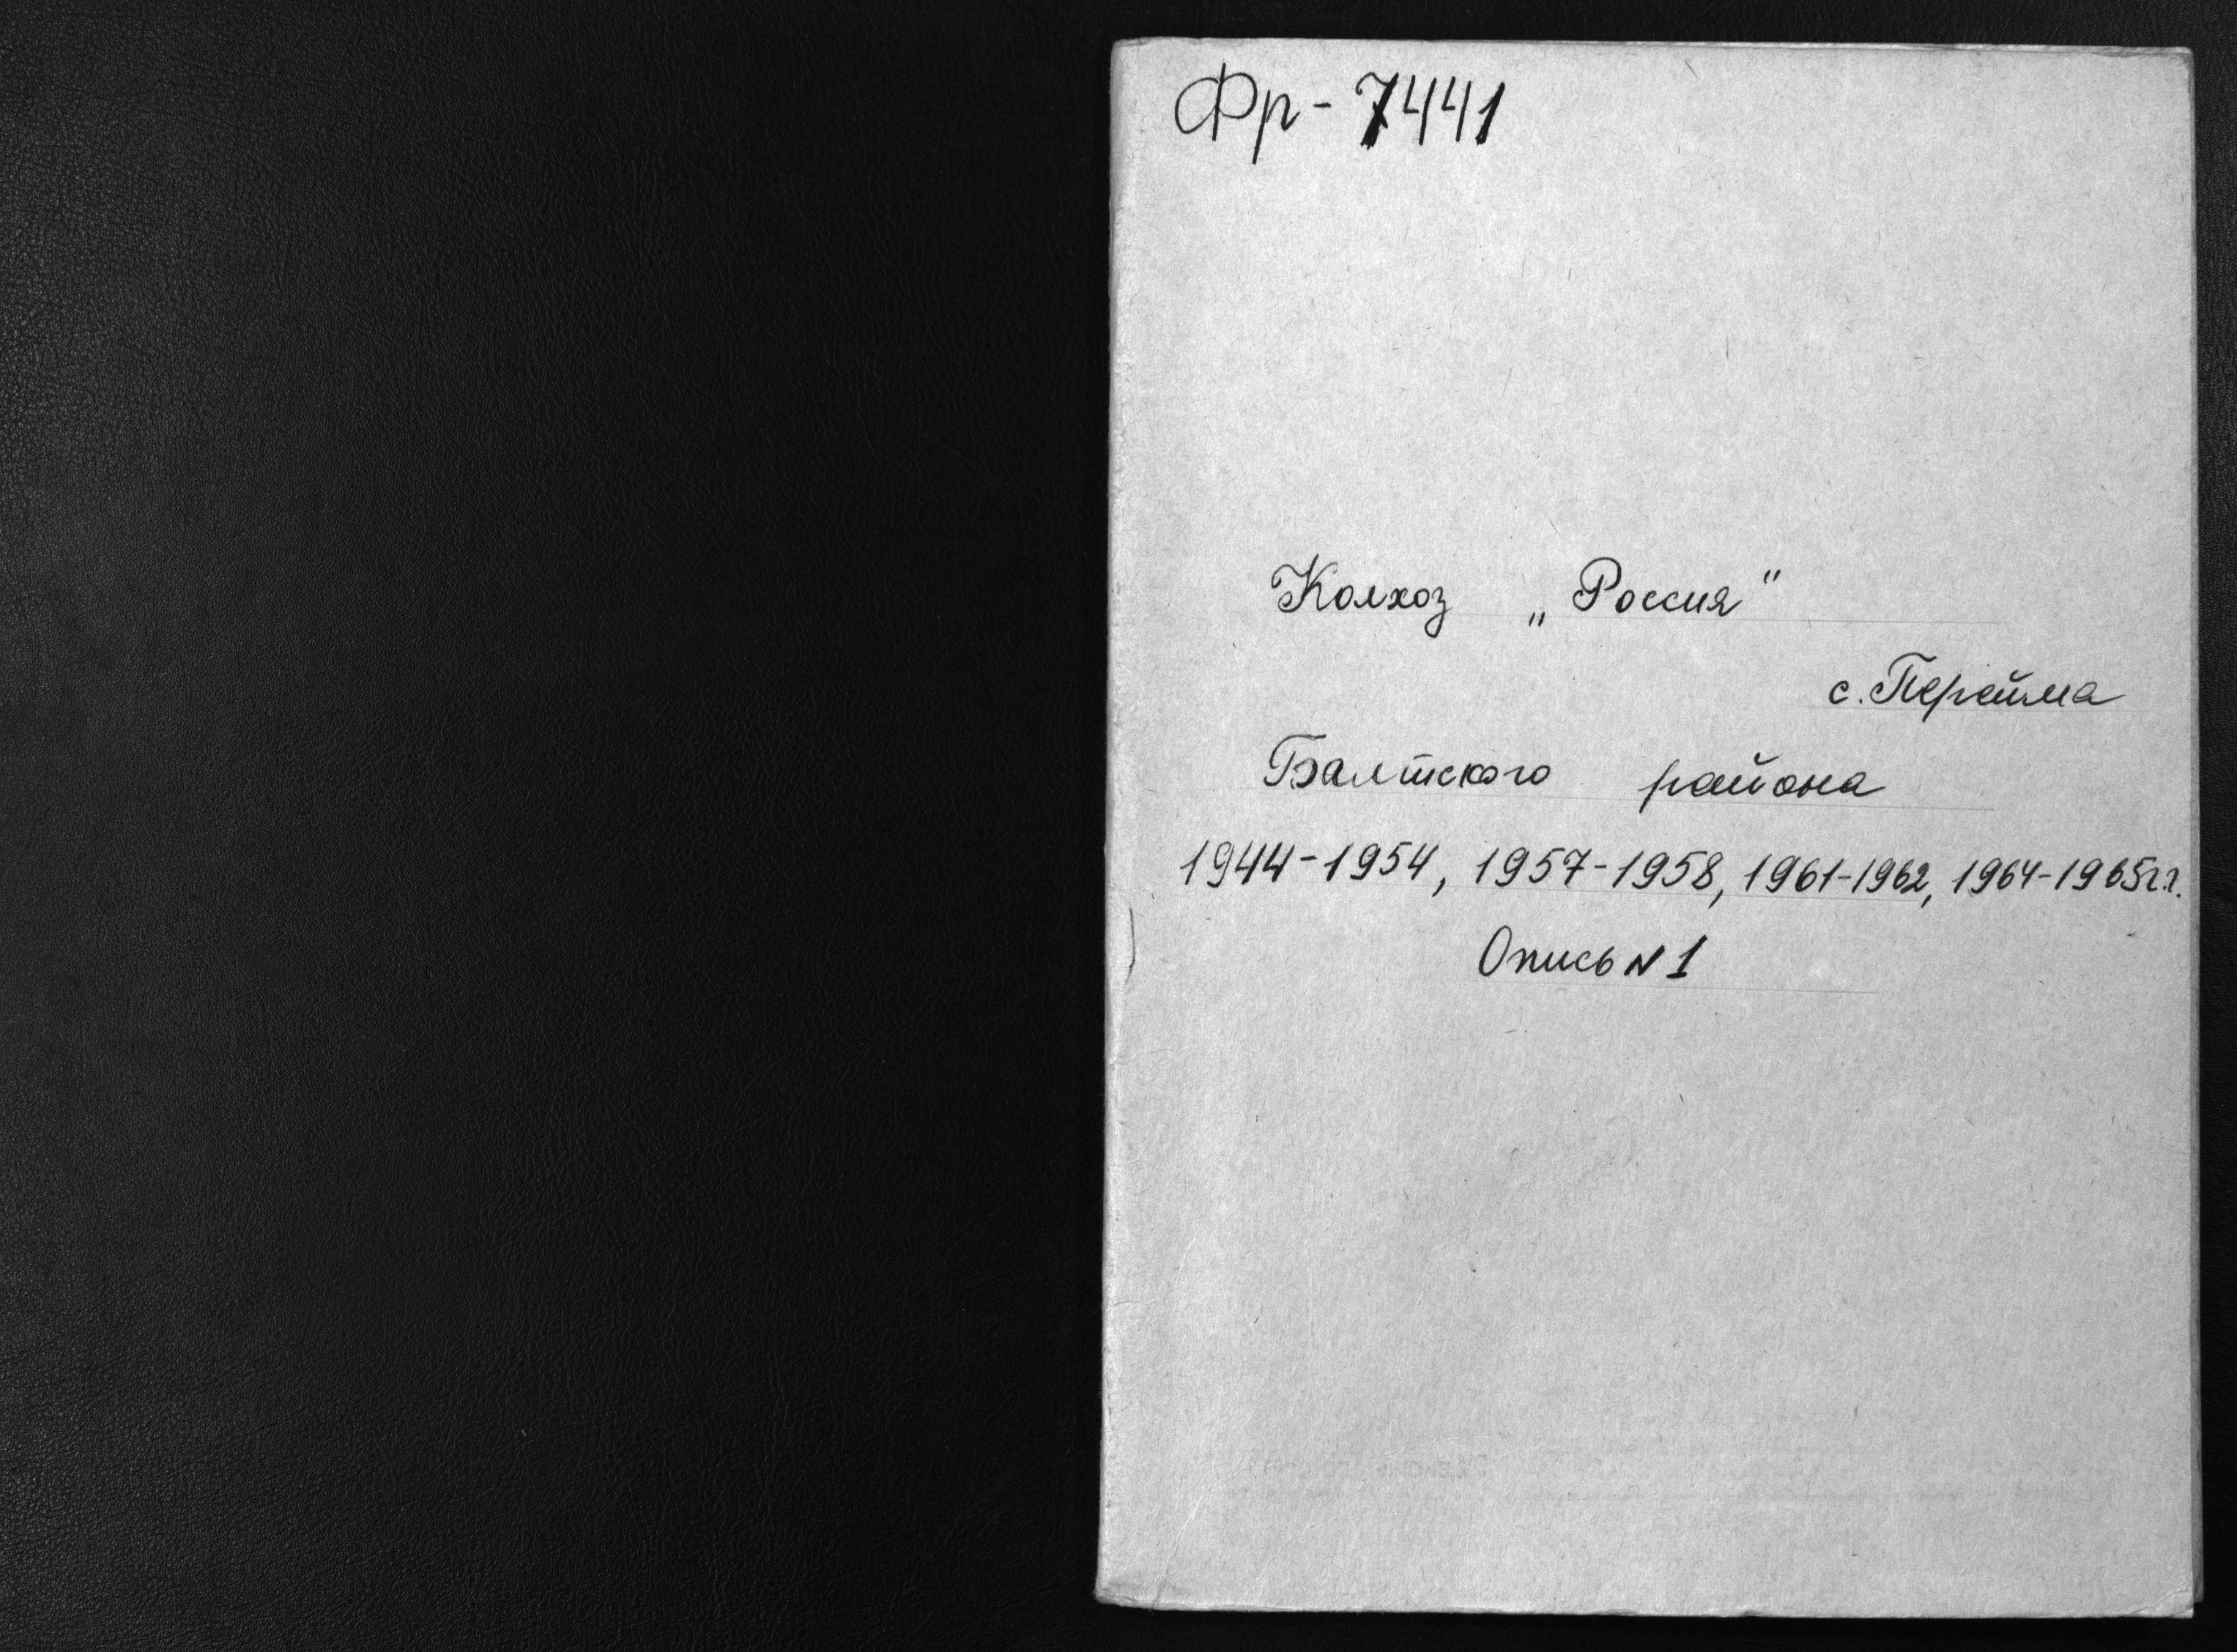 Фр-7441
Колхоз „Россия"
с. Перейма
Балтского района
1944-1954, 1957-1958, 1961-1962, 1964-1965г.г.
Опись N 1